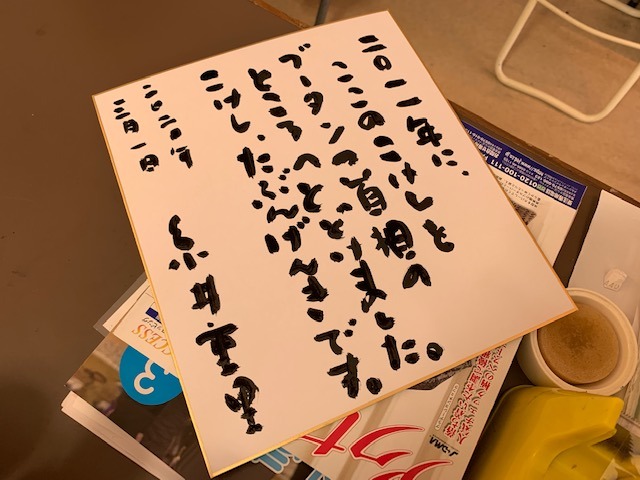 二〇一一年に、
ここのこけしを
ブータンの首相の
ところへとどけました。
こけし、たぶんげんきです。
二〇二〇年
三月一日
糸井重里
0120-100-111
CCESS
3
J-CMA